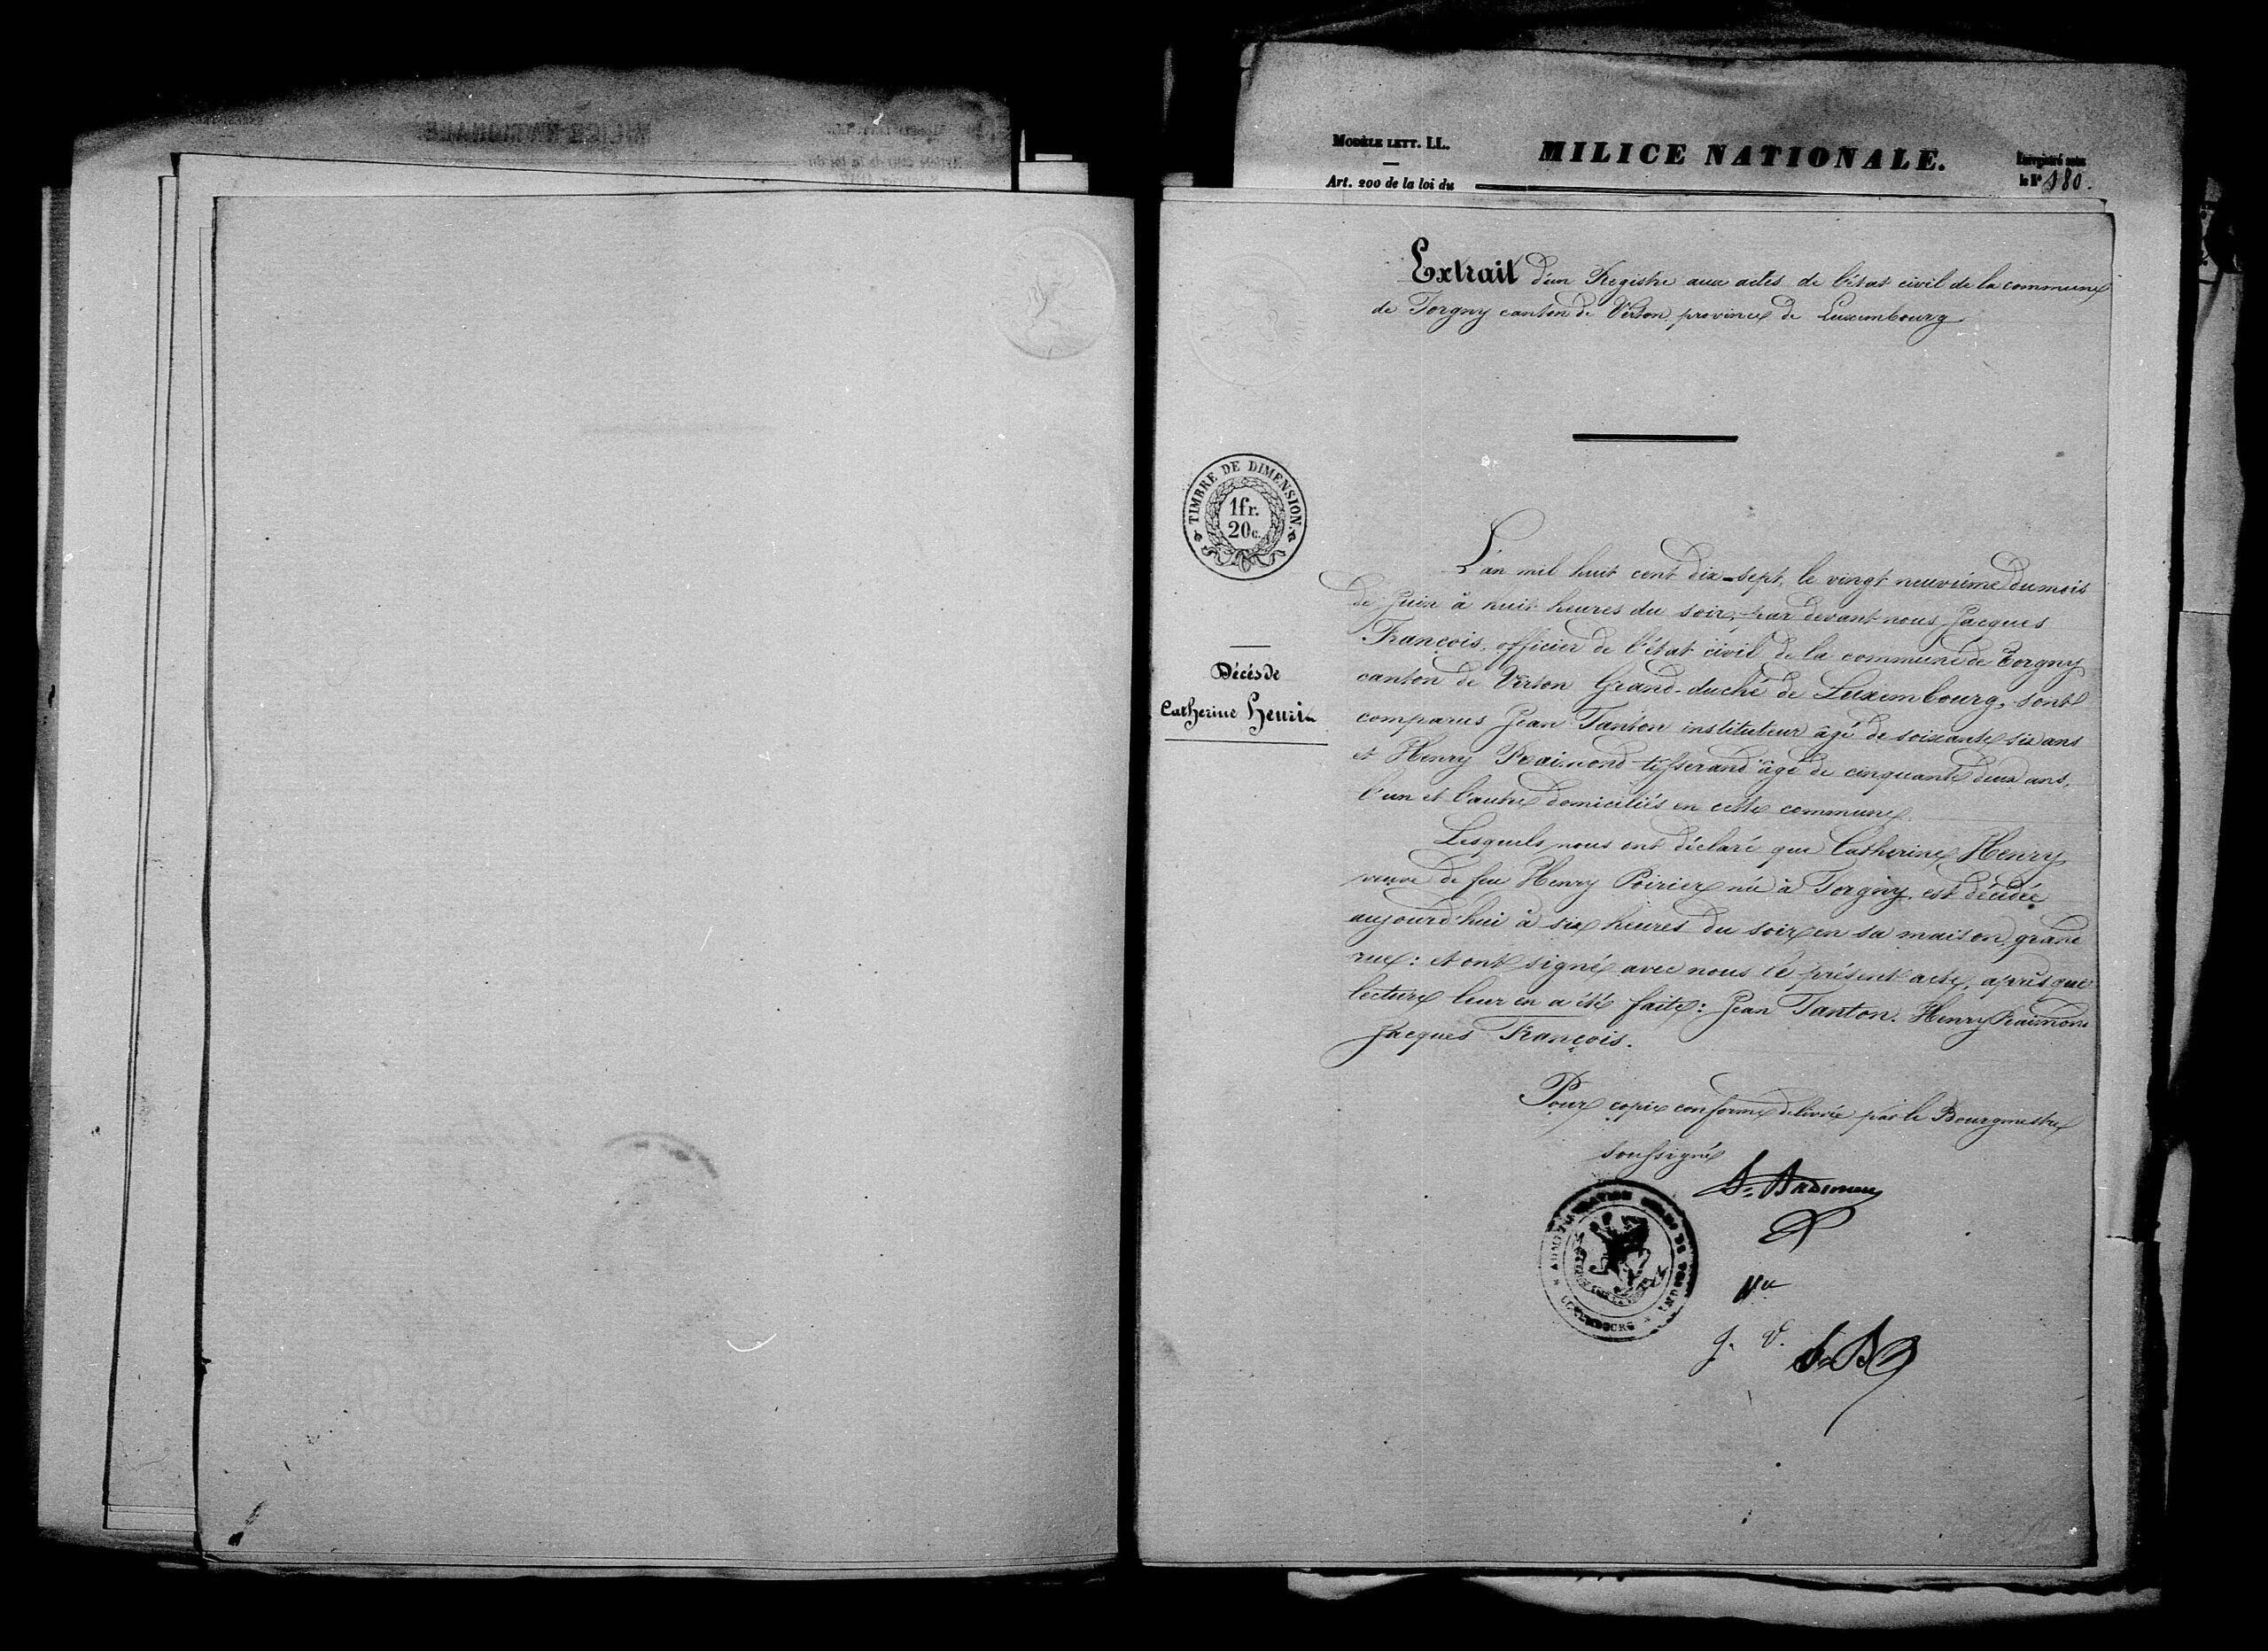 MODÈLE LETT. LL.
MILICE NATIONALE.
Enregistré sous
le N° 180.
Art. 200 de la loi du
Extrait d'un Registre aux actes de l'état civil de la commune
de Torgny canton de Virton, province de Luxembourg
TIMBRE DE DIMENSION.
1fr.
20c.
Décès de
Catherine Henri
L'an mil huit cent dix-sept, le vingt neuvième du mois
de Juin à huit heures du soir, par devant nous Jacques
François, officier de l'état civil de la commune de Torgny
canton de Virton Grand-duché de Luxembourg, sont
comparus Jean Tanton instituteur âgé de soixante six ans
et Henry Raimond tisserand âgé de cinquante deux ans,
l'un et l'autre domiciliés en cette commune.
Lesquels nous ont déclaré que Catherine Henry
veuve de feu Henry Poirier née à Torgny, est décédée
aujourd'hui à six heures du soir en sa maison, grand
rue: et ont signé avec nous le présent acte, après que
lecture leur en a été faite: Jean Tanton. Henry Raimond
Jacques François.
Pour copie conforme délivrée par le Bourgmestre
soussigné
ADMINISTRATION
LUXEMBOURG